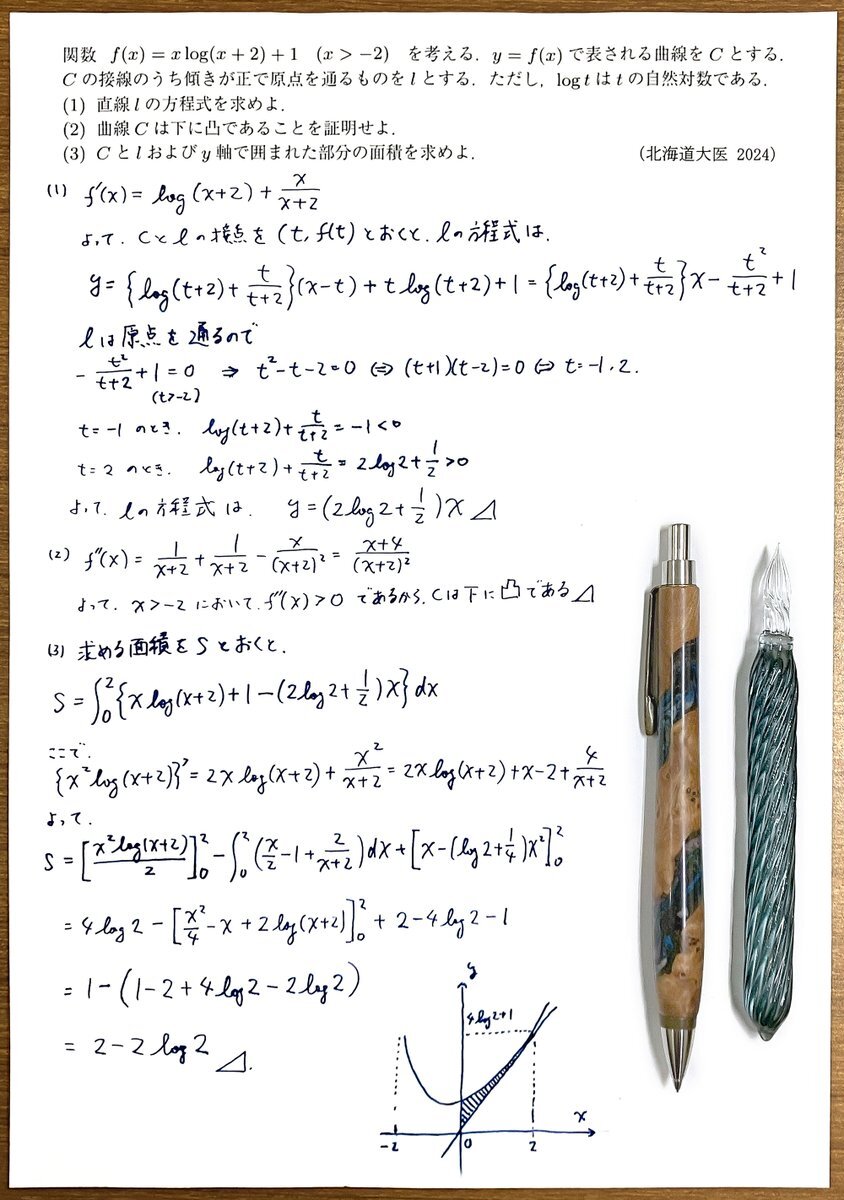 関数 f(x) = x log(x + 2) + 1 (x > −2) を考える．y = f(x) で表される曲線を C とする．
C の接線のうち傾きが正で原点を通るものを l とする．ただし，log t は t の自然対数である．
(1) 直線 l の方程式を求めよ．
(2) 曲線 C は下に凸であることを証明せよ．
(3) C と l および y 軸で囲まれた部分の面積を求めよ． (北海道大医 2024)
(1) f'(x) = log(x+2) + x/(x+2)
よって、Cとlの接点を(t, f(t))とおくと、lの方程式は、
y = {log(t+2) + t/(t+2)}(x−t) + t log(t+2) + 1 = {log(t+2) + t/(t+2)}x − t²/(t+2) + 1
lは原点を通るので
−t²/(t+2) + 1 = 0 ⇒ t²−t−2=0 ⇔ (t+1)(t−2)=0 ⇔ t=−1, 2.
(t>−2)
t=−1 のとき、 log(t+2) + t/(t+2) = −1 < 0
t=2 のとき、 log(t+2) + t/(t+2) = 2log2 + 1/2 > 0
よって、lの方程式は、 y = (2log2 + 1/2)x
(2) f''(x) = 1/(x+2) + 1/(x+2) − x/(x+2)² = (x+4)/(x+2)²
よって、x>−2 において、f''(x)>0 であるから、Cは下に凸である
(3) 求める面積をSとおくと、
S = ∫₀² {x log(x+2) + 1 − (2log2 + 1/2)x} dx
ここで、
{x² log(x+2)}' = 2x log(x+2) + x²/(x+2) = 2x log(x+2) + x − 2 + 4/(x+2)
よって、
S = [x² log(x+2)/2]₀² − ∫₀² (x/2 − 1 + 2/(x+2)) dx + [x − (log2 + 1/4)x²]₀²
= 4log2 − [x²/4 − x + 2log(x+2)]₀² + 2 − 4log2 − 1
= 1 − (1 − 2 + 4log2 − 2log2)
= 2 − 2log2
y
4log2+1
x
−2 0 2